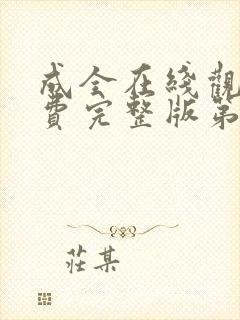 成全在綫觀
費完整版第
莊某